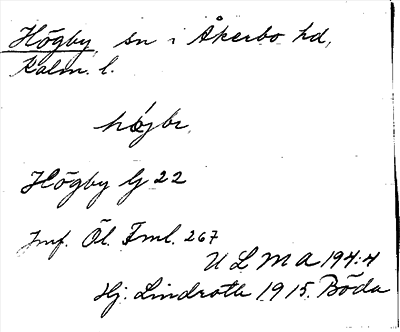 Högby, sn i Åkerbo hd,
Kalm. l.
högbr,
Högby G 22
Jmf. Öl. Fml. 267
U L M A 194:4
Hj. Lindroth 1915. Böda